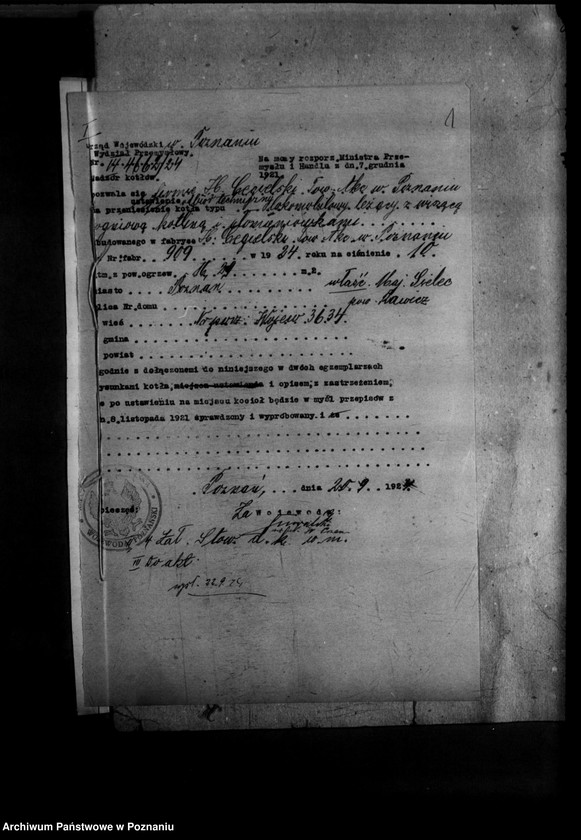 1
Urząd Wojewódzki w Poznaniu
Wydział Przemysłowy.
Nadzór kotłów.
Na mocy rozporz. Ministra Prze-
mysłu i Handlu z dn. 7. grudnia
1921
pozwala się firmie H. Cegielski Tow. Akc. w Poznaniu
ustawienie
na przeniesienie kotła typu lokomobilowy leżący z wizącą
ogniową skrzynią i płomieniówkami
budowanego w fabryce H. Cegielski Tow. Akc. w Poznaniu
Nr. fabr. 909 w 1924 roku na ciśnienie 10
atm. z pow. ogrzew. m.2.
miasto Poznań właśc. Maj.
ulica Nr. domu pow. Rawicz
wieś 3634.
gmina
powiat
zgodnie z dołączonemi do niniejszego w dwóch egzemplarzach
rysunkami kotła, miejsca ustawienia i opisem, z zastrzeżeniem,
że po ustawieniu na miejscu kocioł będzie w myśl przepisów z
dn. 8. listopada 1921 sprawdzony i wypróbowany. i że
Poznań, dnia 20. 9. 1924.
pieczęć: Za Wojewodę:
4 Zał. Stow. d. k. w m.
do akt
22.9.24
Archiwum Państwowe w Poznaniu